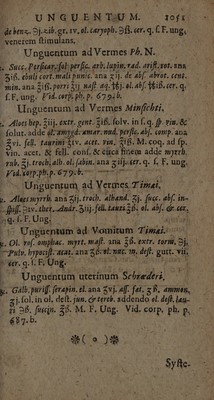 UNGUENTUM. 1051
de benz. ʒj. zib. gr. iv. ol. caryoph. ℈ß. cer. q. ſ. F. ung.
venerem ſtimulans.
Unguentum ad Vermes Ph. N.
Succ. Perſicar. fol. perſic. arb. lupin. rad. ariſt. vet. ana
℥iß. ebuli cort. mali punic. ana ʒij. de abſ. abrot. cent.
min. ana ʒiß. porri ʒij maſt. aq. ol. abſ. cer. q.
ſ. F. ung. Vid. corp. ph. p. 679. b.
Unguentum ad Vermes Minſichti.
Aloes hep. ʒiij. extr. gent. ʒiß. ſolv. in ſ. q. rin. &
ſolut. adde ol. amygd. amar. nucl. perſic. abſ. comp. ana
ʒvi. fell. taurini ʒiv. acet. vin. ʒiß. M. coq. ad ſp.
vin. acet. & fell. conſ. & circa finem adde myrrh.
rub. ʒj. troch. alb. ol. ſabin. ana ʒiij. cer. q. ſ. F. ung.
Vid. corp. ph. p. 679. b.
Unguentum ad Vermes Timæi.
Aloes myrrh. ana ʒij. troch. alhand. ʒj. ſucc. abſ. in-
ſpiſſ. ther. Andr. fell. tauri ol. abſ. & cer.
q. ſ. F. Ung.
Unguentum ad Vomitum Timæi.
Ol. roſ. omphac. myrt. maſt. ana ʒß. entr. torm. ℈j.
Pulv. hypociſt. acac. ana ʒß. ol. nuc. m. deſt. gutt. vii.
cer. q. ſ. F. Ung.
Unguentum uterinum Schrœderi.
Galb. puriſſ. ſerapin. el. ana ʒvj. aſſ. fœt. ammon.
ʒj. ſol. in ol. deſt. jun. & tereb. addendo el. deſt. lau-
ri ℈ß. ſuccin. M. F. Ung. Vid. corp. ph. p.
687. b.
Syſte-